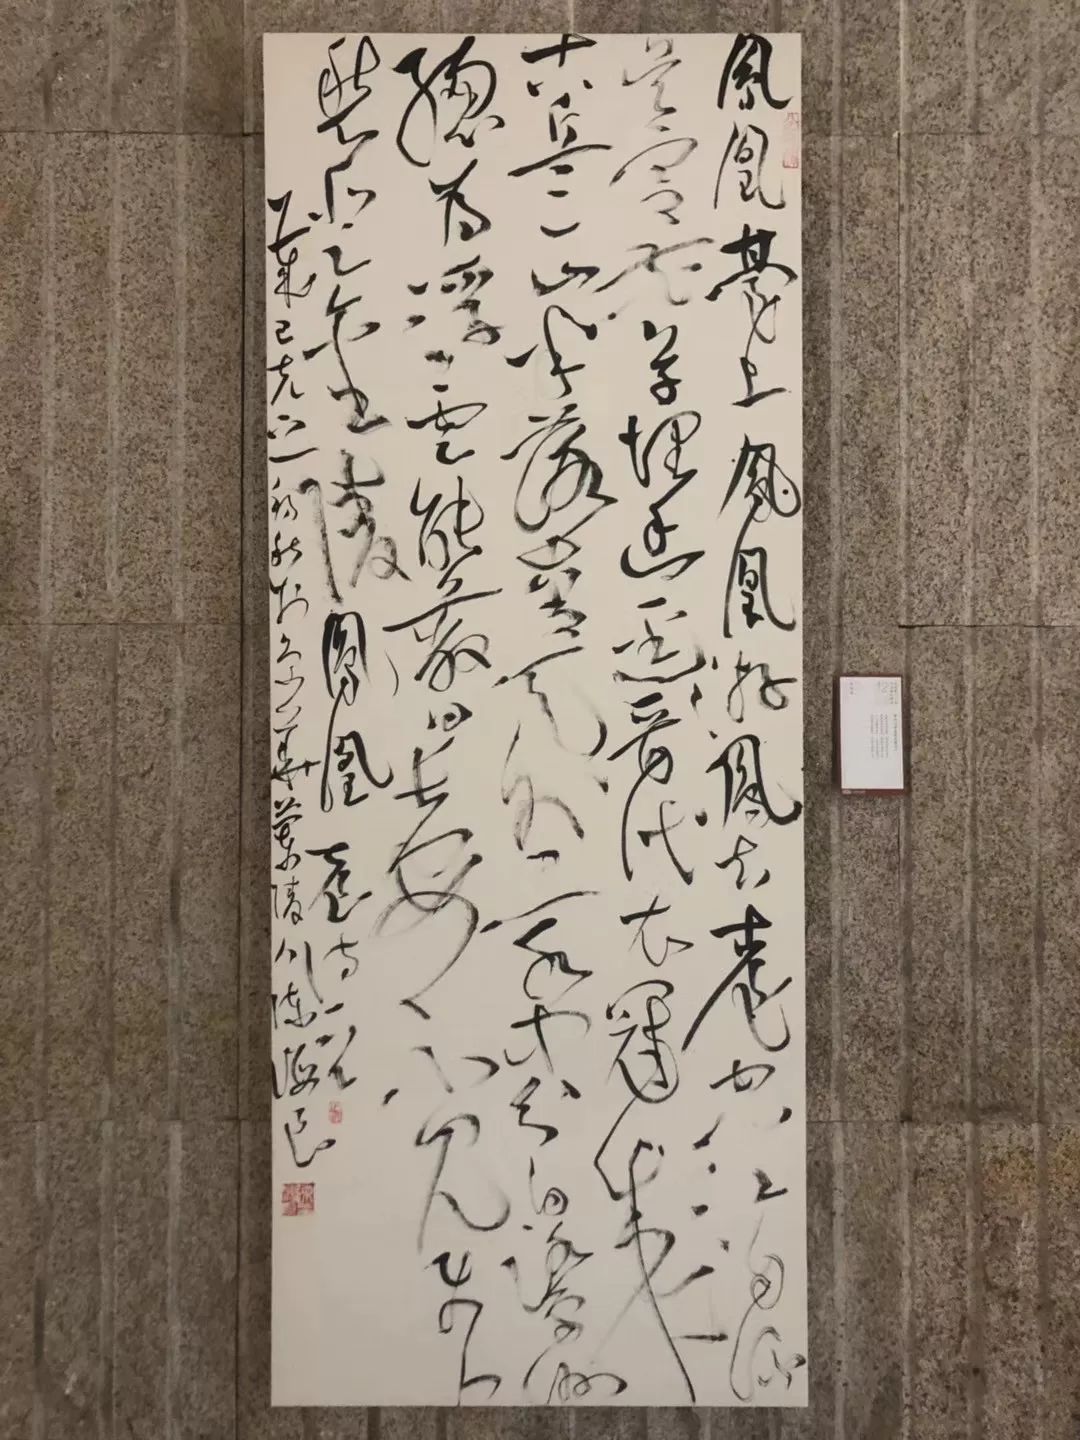 鳳凰臺上鳳凰游鳳去臺空江自流
吴宫花草埋幽徑晉代衣冠成
古丘三山半落青天外一水中分白鷺洲
總為浮雲能蔽日長安不見使人
愁金陵鳳凰臺詩一首
歲己亥之初秋於京華蘭陵人陳海良